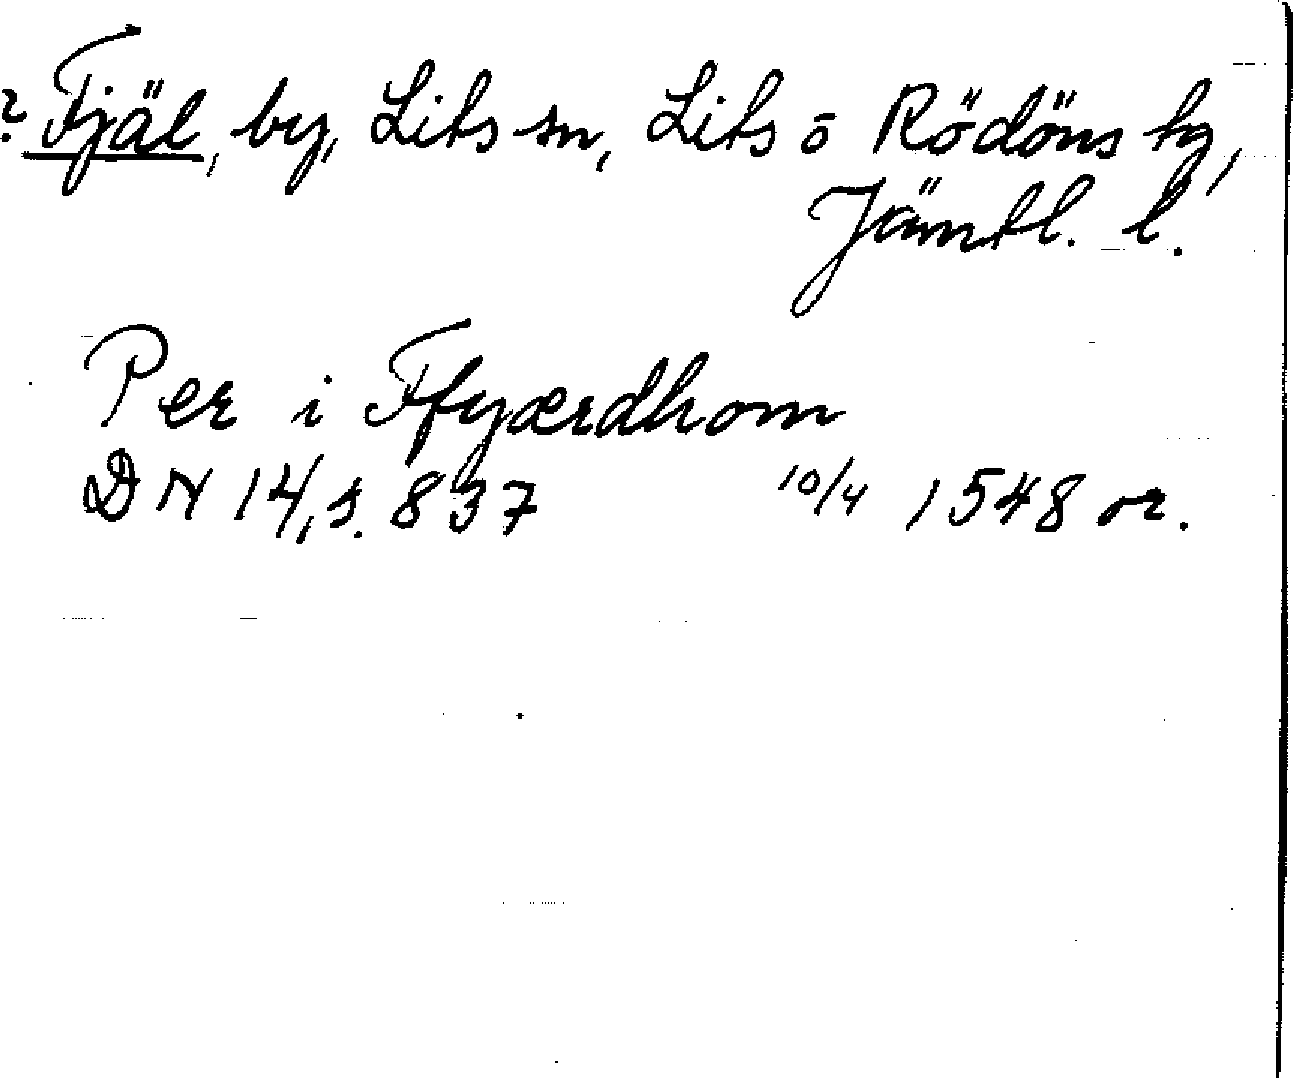 ? Fjäl, by, Lits sn, Lits o Rödöns tg,
Jämtl. l.
Per i Ffyærdhom
DN 14, s. 837 10/4 1548 or.